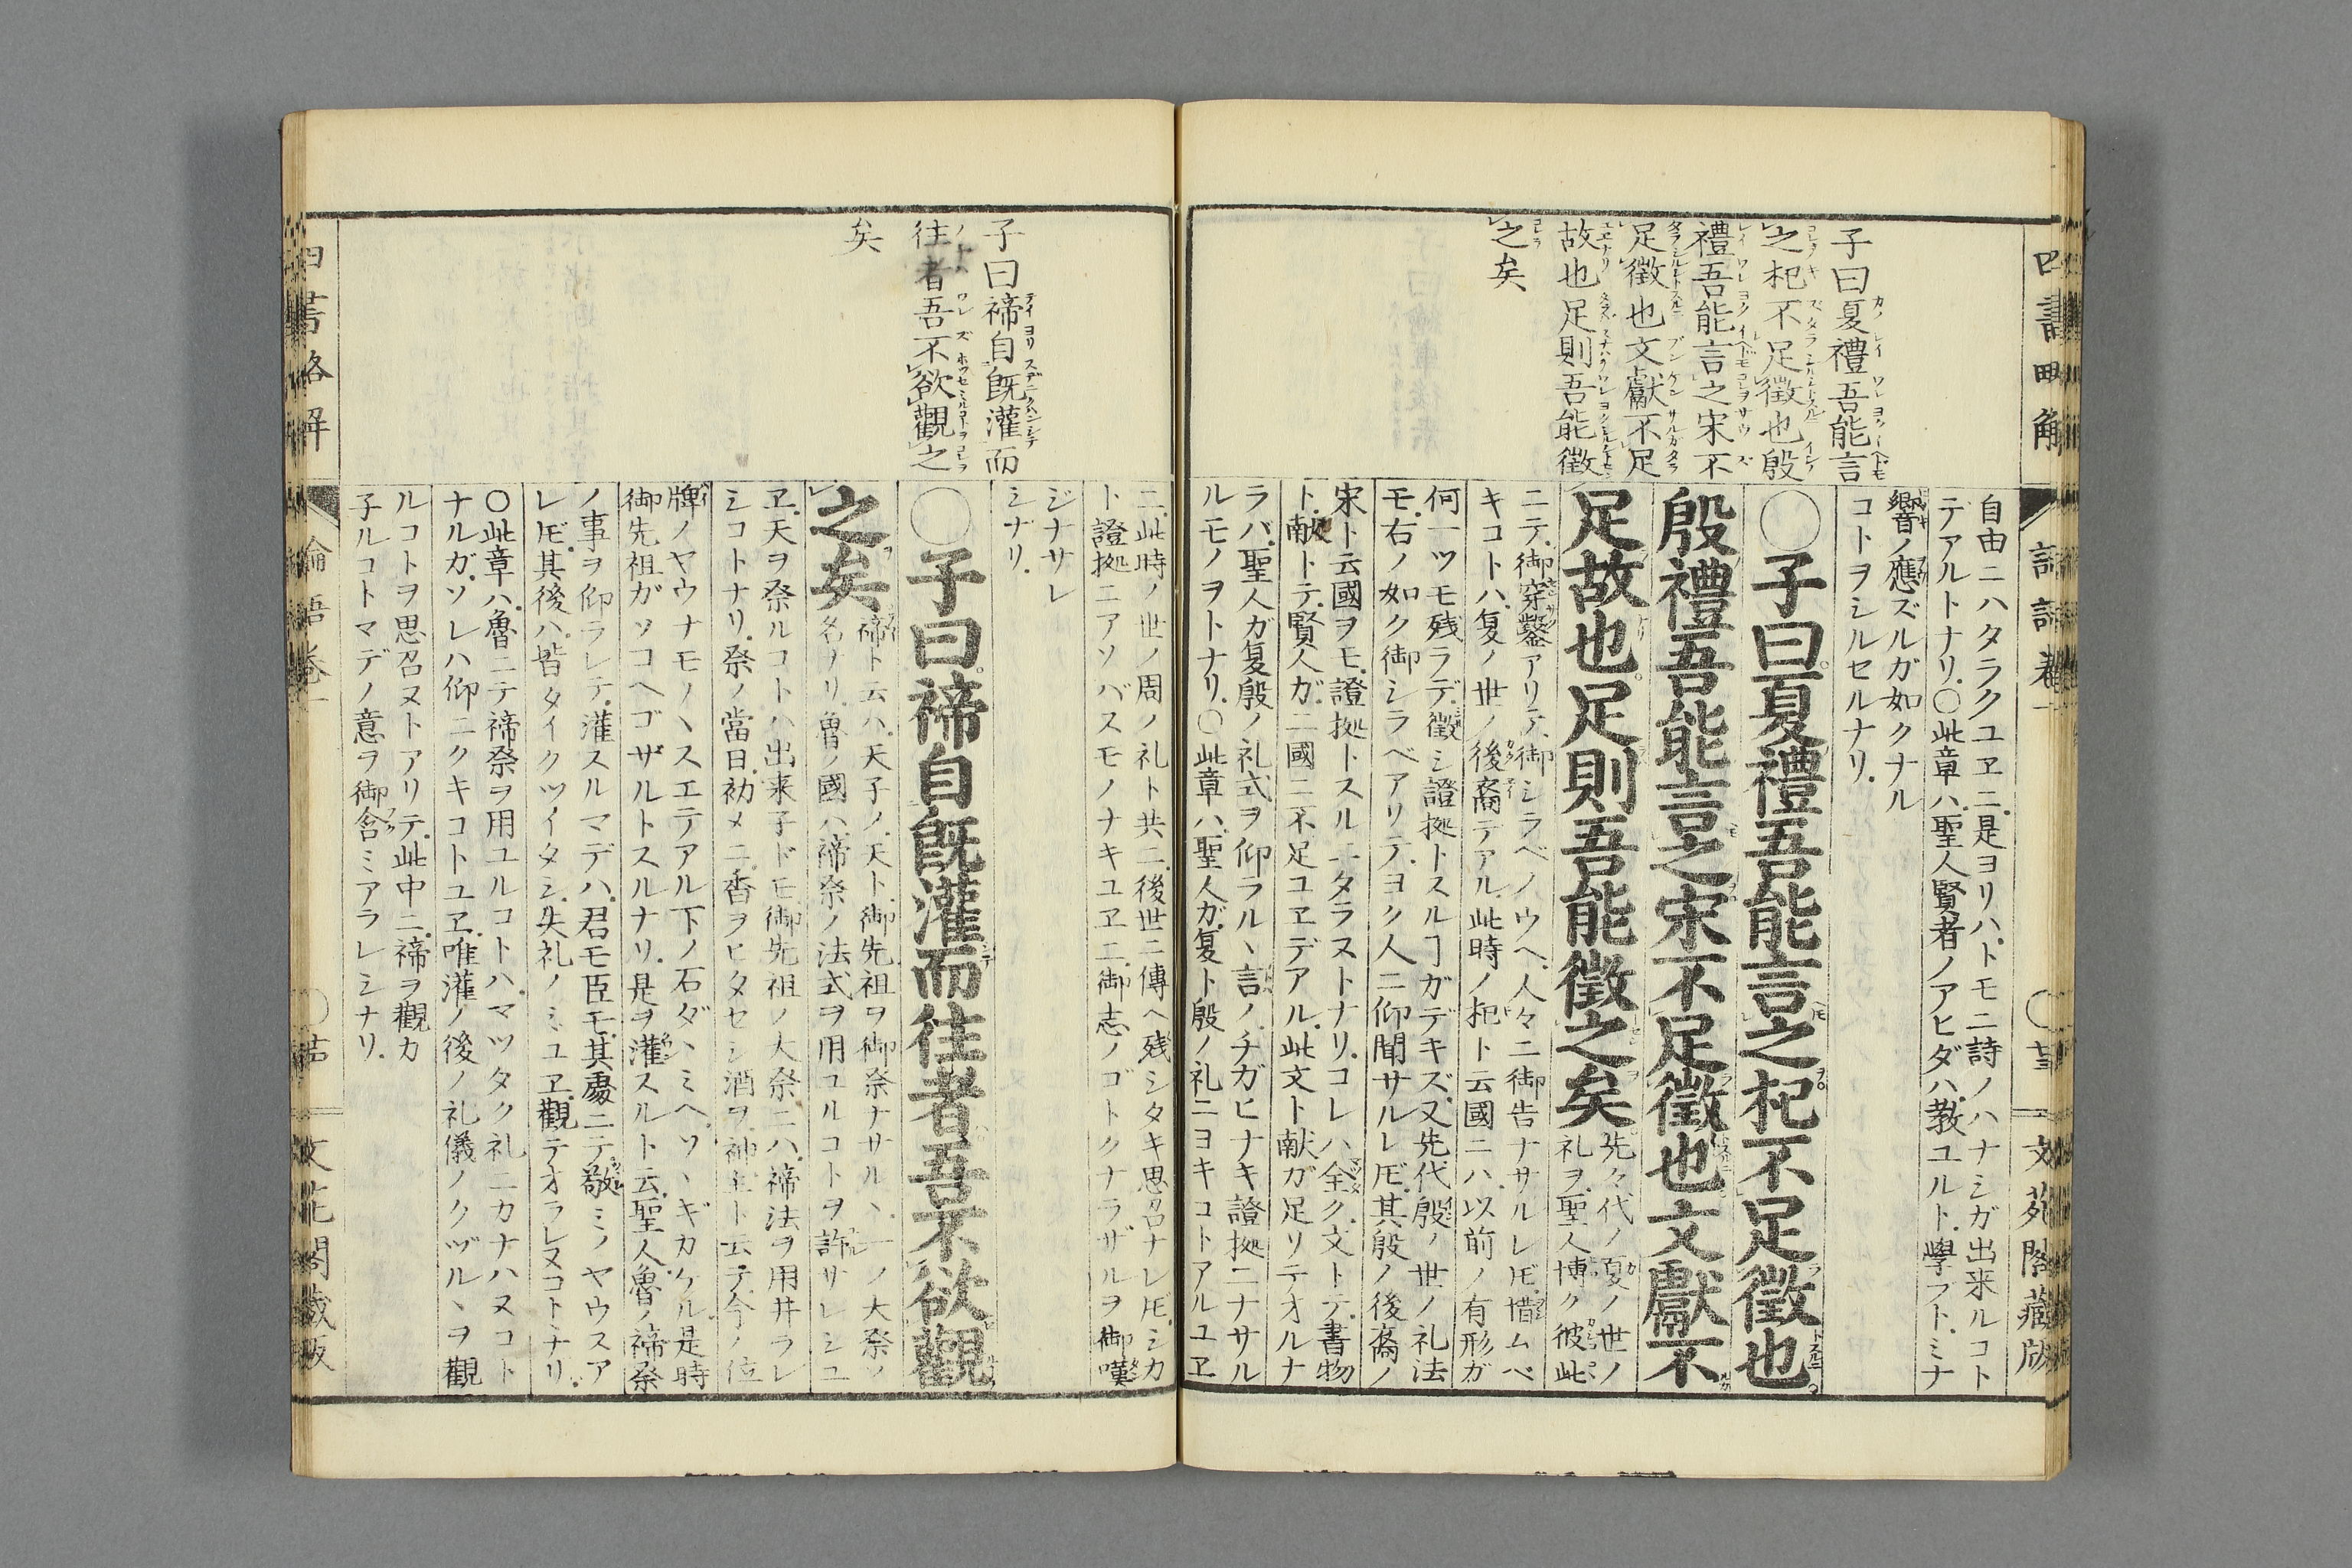 子曰夏禮吾能言
之杞不足徵也殷
禮吾能言之宋不
足徵也文獻不足
故也足則吾能徵
之矣
自由ニハタラクユヱニ是ヨリハトモニ詩ノハナシガ出来ルコト
テアルトナリ○此章ハ聖人賢者ノアヒダハ教ユルト學フトミナ
響ノ應ズルガ如クナル
コトヲシルセルナリ
○子曰夏禮吾能言之杞不足徵也
殷禮吾能言之宋不足徵也文獻不
足故也足則吾能徵之矣
先々代ノ夏ノ世ノ
礼ヲ聖人博ク彼此
ニテ御穿鑿アリテ御シラベノウヘ人々ニ御告ナサルレ𪜈惜ムベ
キコトハ夏ノ世ノ後裔テアル此時ノ杞ト云國ニハ以前ノ有形ガ
何一ツモ残ラデ徵シ證拠トスルヿガデキズ又先代殷ノ世ノ礼法
モ右ノ如ク御シラベアリテヨク人ニ仰聞サルレ𪜈其殷ノ後裔ノ
宋ト云國ヲモ證拠トスルニタラヌトナリコレハ全ク文トテ書物
ト献トテ賢人ガ二國ニ不足ユヱデアル此文ト献ガ足リテオルナ
ラバ聖人ガ夏殷ノ礼式ヲ仰ラルヽ言ノチガヒナキ證拠ニナサル
ルモノヲトナリ○此章ハ聖人ガ夏ト殷ノ礼ニヨキコトアルユヱ
子曰禘自既灌而
往者吾不欲觀之
矣
ニ此時ノ世ノ周ノ礼ト共ニ後世ニ傳ヘ残シタキ思召ナレ𪜈シカ
ト證拠ニアソバスモノナキユヱニ御志ノゴトクナラザルヲ御嘆
ジナサレ
シナリ
○子曰禘自既灌而往者吾不欲觀
之矣
禘ト云ハ天子ノ天ト御先祖ヲ御祭ナサルヽ一ノ大祭ノ
名ナリ魯ノ國ハ禘祭ノ法式ヲ用ユルコトヲ許サレシユ
ヱ天ヲ祭ルコトハ出来子ドモ御先祖ノ大祭ニハ禘法ヲ用井ラレ
シコトナリ祭ノ當日初メニ香ヲヒタセシ酒ヲ神主ト云テ今ノ位
牌ノヤウナモノヽスエテアル下ノ石ダヽミヘソヽギカケル是時
御先祖ガソコヘゴザルトスルナリ是ヲ灌スルト云聖人魯ノ禘祭
ノ事ヲ仰ラレテ灌スルマデハ君モ臣モ其處ニテ敬ミノヤウスア
レ𪜈其後ハ皆タイクツイタシ失礼ノミユヱ觀テオラレヌコトナリ
○此章ハ魯ニテ禘祭ヲ用ユルコトハマツタク礼ニカナハヌコト
ナルガソレハ仰ニクキコトユヱ唯灌ノ後ノ礼儀ノクヅルヽヲ觀
ルコトヲ思召ヌトアリテ此中ニ禘ヲ觀カ
子ルコトマデノ意ヲ御含ミアラレシナリ